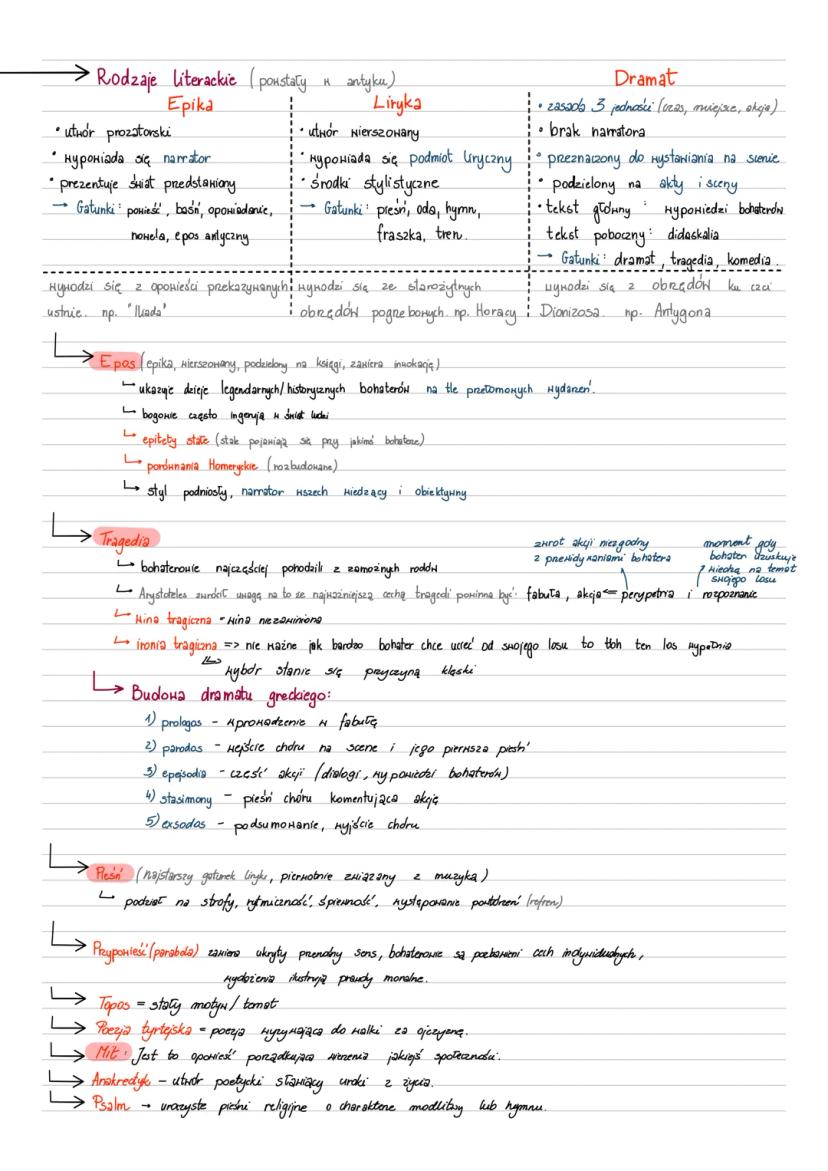 Rodzaje literackie (powstały w antyku)
Epika
• utwór prozatorski
• wypowiada się narrator
• prezentuje świat przedstawiony
→ Gatunki: powieść, baśń, opowiadanie,
nowela, epos antyczny
wywodzi się z opowieści przekazywanych
ustnie. np. "Iliada"
Liryka
• utwór wierszowany
• wypowiada się podmiot liryczny
• środki stylistyczne
→ Gatunki: pieśń, oda, hymn,
fraszka, tren.
wywodzi się ze starożytnych
obrzędów pogrzebowych. np. Horacy
Dramat
• zasada 3 jedności (czas, miejsce, akcja)
• brak narratora
• przeznaczony do wystawiania na scenie
• podzielony na akty i sceny
• tekst główny: wypowiedzi bohaterów
tekst poboczny: didaskalia
→ Gatunki: dramat, tragedia, komedia.
wywodzi się z obrzędów ku czci
Dionizosa. np. Antygona
Epos (epika, wierszowany, podzielony na księgi, zawiera inwokację)
ukazuje dzieje legendarnych/historycznych bohaterów na tle przełomowych wydarzeń.
bogowie często ingerują w świat ludzi
epitety stałe (stale pojawiają się przy jakimś bohaterze)
porównania Homeryckie (rozbudowane)
styl podniosły, narrator wszech wiedzący i obiektywny
Tragedia
zwrot akcji niezgodny
z przewidywaniami bohatera
moment gdy
bohater uzyskuje
wiedzę na temat
swojego losu
bohaterowie najczęściej pohodzili z zamożnych rodów
Arystoteles zwrócił uwagę na to że najważniejszą cechą tragedi powinna być: fabuła, akcja perypetria i rozpoznanie
wina tragiczna = wina niezawiniona
ironia tragiczna => nie ważne jak bardzo bohater chce uciec od swojego losu to tboh ten los wypełnia
wybór stanie się przyczyną klęski
Budowa dramatu greckiego:
1) prologos - wprowadzenie w fabułę
2) parodos - wejście chóru na scene i jego pierwsza pieśń
3) epejsodia - część akcji (dialogi, wypowiedzi bohaterów)
4) stasimony - pieśń chóru komentująca akcję
5) exsodos - podsumowanie, wyjście chóru
Pieśń (najstarszy gatunek liryki, pierwotnie związany z muzyką)
podział na strofy, rytmiczność, śpiewność, występowanie powtórzeń (refren)
Przypowieść (parabola) zawiera ukryty przenośny sens, bohaterowie są pozbawieni cech indywidualnych,
wydarzenia ilustrują prawdy moralne.
Topos = stały motyw/temat
Poezja tyrtejska = poezja wyzywająca do walki za ojczyznę.
Mit: Jest to opowieść porządkująca wierzenia jakiejś społeczności.
Anakreotyk - utwór poetycki sławiący uroki z życia.
Psalm → uroczyste pieśni religijne o charakterze modlitwy lub hymnu.